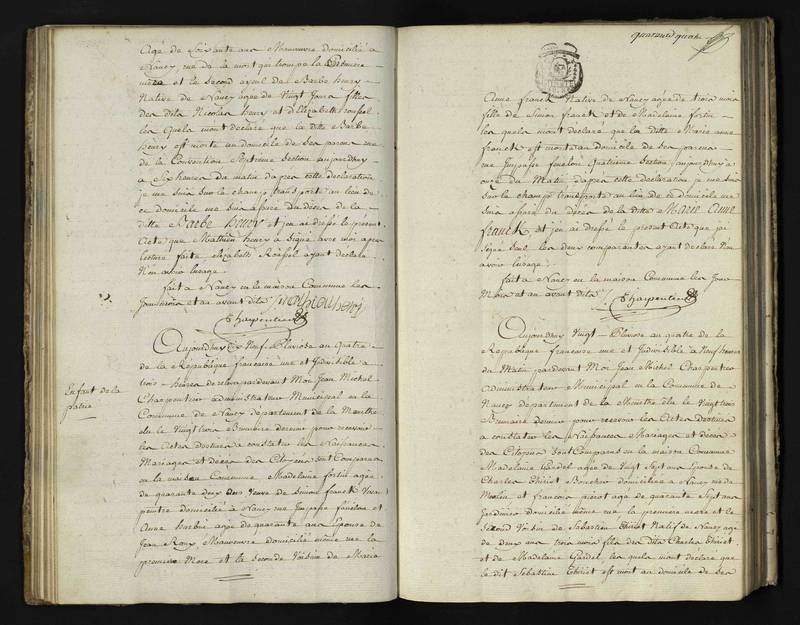 agé de Soixante ans Manœuvre domicilié a
Nancy, rue de la mont qui trompe la Premiere
mere et le Second ayeul de Barbe henry
Native de Nancy agée de Vingt Jours fille
des dits Nicolas henry et d'Elizabeth roussel
les quels mont declaré que la ditte Barbe
henry est morte au domicile de ses parens rue
de la Convention Septieme Section aujourdhuy
a Sept heures du matin dapres cette declaration
je me suis sur le champ transporté au lieu de
ce domicile me suis assuré du deces de la
ditte Barbe henry et jen ai dressé le present
acte que Mathieu henry a signé avec moi apres
lecture faite elizabeth Roussel ayant declaré
n'en avoir l'usage.
fait a Nancy en la maison Commune les
Jour mois et an avant dits
Charpentier
Enfant de la
patrie
Aujourdhuy Dix Neuf Pluviose an quatre
de la Republique francaise une et Indivisible a
trois heures de relevé pardevant Moi Jean Michel
Charpentier administrateur Municipal en la
Commune de Nancy departement de la Meurthe
élu le Vingt trois Brumaire dernier pour recevoir
les Actes destinés a constater les Naissances
Mariages et Décès des Citoyens sont Comparus
en la maison Commune Madelaine fortin agée
de quarante deux ans Veuve de Simon franck
domicilié a Nancy rue Jusqu'a fenelon et
Anne barbier agée de quarante ans Epouse de
Jean Roy Manoeuvre domicilié même rue la
premiere Mere et la Seconde Voisine de Marie
quarante quatre
Anne franck Native de Nancy agée de trois mois
fille de Simon franck et de Madelaine fortin
les quels mont declaré que la ditte Marie anne
franck est morte au domicile de ses parens
rue fenelon Quatrieme Section aujourdhuy a
onze du Matin dapres cette declaration je me suis
sur le champ transporté au lieu de ce domicile me
suis assuré du deces de la ditte Marie Anne
franck et jen ai dressé le present Acte que jai
signé seul les deux comparantes ayant declaré n'en
avoir l'usage.
fait a Nancy en la maison Commune les Jour
Mois et an avant dits
Charpentier
Aujourdhuy Vingt Pluviose an quatre de la
Republique francaise une et Indivisible a Neuf heures
du Matin pardevant Moi Jean Michel Charpentier
administrateur Municipal en la Commune de
Nancy departement de la Meurthe élu le Vingt trois
Brumaire dernier pour recevoir les Actes destinés
a constater les Naissances Mariages et décès
des Citoyens sont Comparus en la maison Commune
Madelaine Gardel agée de Vingt Sept ans Epouse de
Charles Thiriet Boucher domicilié a Nancy rue de
Moulin et francois pierot agé de quarante Sept ans
Jardinier domicilié même rue la premiere mere et le
Second Voisin de Sebastien Thiriet Natif de Nancy agé
de Deux ans trois mois fils des dits Charles Thiriet
et de Madelaine Gardel les quels mont declaré que
le dit Sebastien Thiriet est mort au domicile de ses